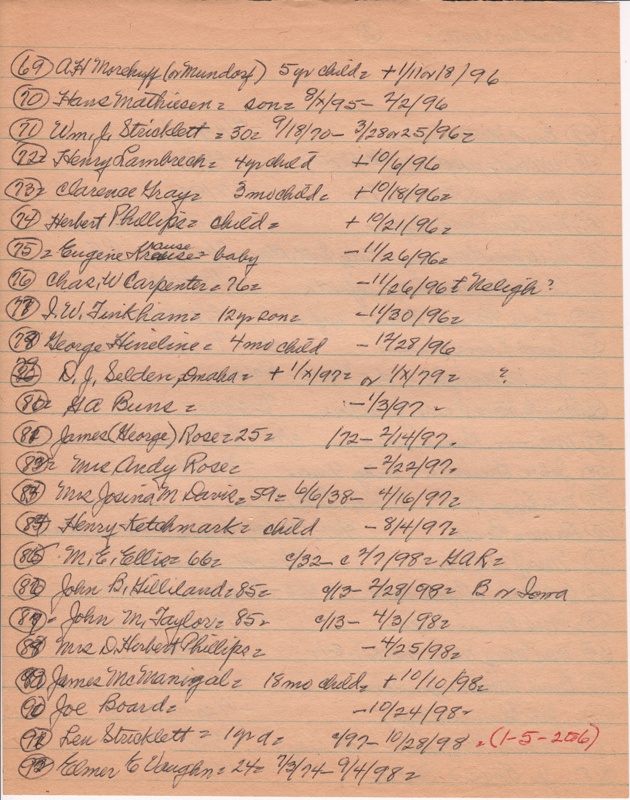 (69) A.H. Morehuff (or Mundorf) 5 yr child = + 1/11 or 18/96
(70) Hans Mathiesen = son = 8/x/95 - 2/2/96
(71) Wm. J. Stricklett = 30 = 9/18/70 - 3/28 or 25/96 =
(72) = Henry Lambrech = 4 yr child + 10/6/96
(73) = Clarence Gray = 3 mo child = + 10/18/96 =
(74) Herbert Phillips = child = + 10/21/96 =
(75) = Eugene Krause = baby - 11/26/96 =
(76) Chas. W Carpenter = 76 = - 11/26/96 + Neligh ?
(77) I. W. Finkham = 12 yr son = - 11/30/96 =
(78) George Hineline = 4 mo child - 12/28/96
79 D. J. Selden, Omaha = + 1/x/97 = or 1/x/79 = ?
GA Buns = - 1/3/97 -
James (George) Rose = 25 = /72 - 2/14/97.
Mrs Andy Rose = - 2/22/97.
Mrs Josina M Davis = 59 = 6/6/38 - 4/16/97 =
Henry Ketchmark = child - 8/4/97 =
M. E. Ellis = 66 = c/32 - c 2/7/98 = GAR =
John B. Hilliland = 85 = c/13 - 2/28/98 = B or Iowa
= John M. Taylor = 85 - c/13 - 4/3/98 =
Mrs D. Herbert Phillips = - 4/25/98 =
James McManigal = 18 mo child = + 10/10/98 =
Joe Board = - 10/24/98 -
Len Stricklett = 1 yr d = c/97 - 10/28/98 = (1-5-256)
Elmer E Vaughn = 24 = 7/3/74 - 9/4/98 =